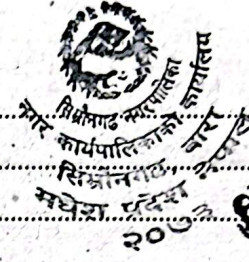 सिम्रौनगढ नगरपालिका
नगर कार्यपालिकाको कार्यालय
सिम्रौनगढ, बारा
मधेश प्रदेश, नेपाल
२०७३